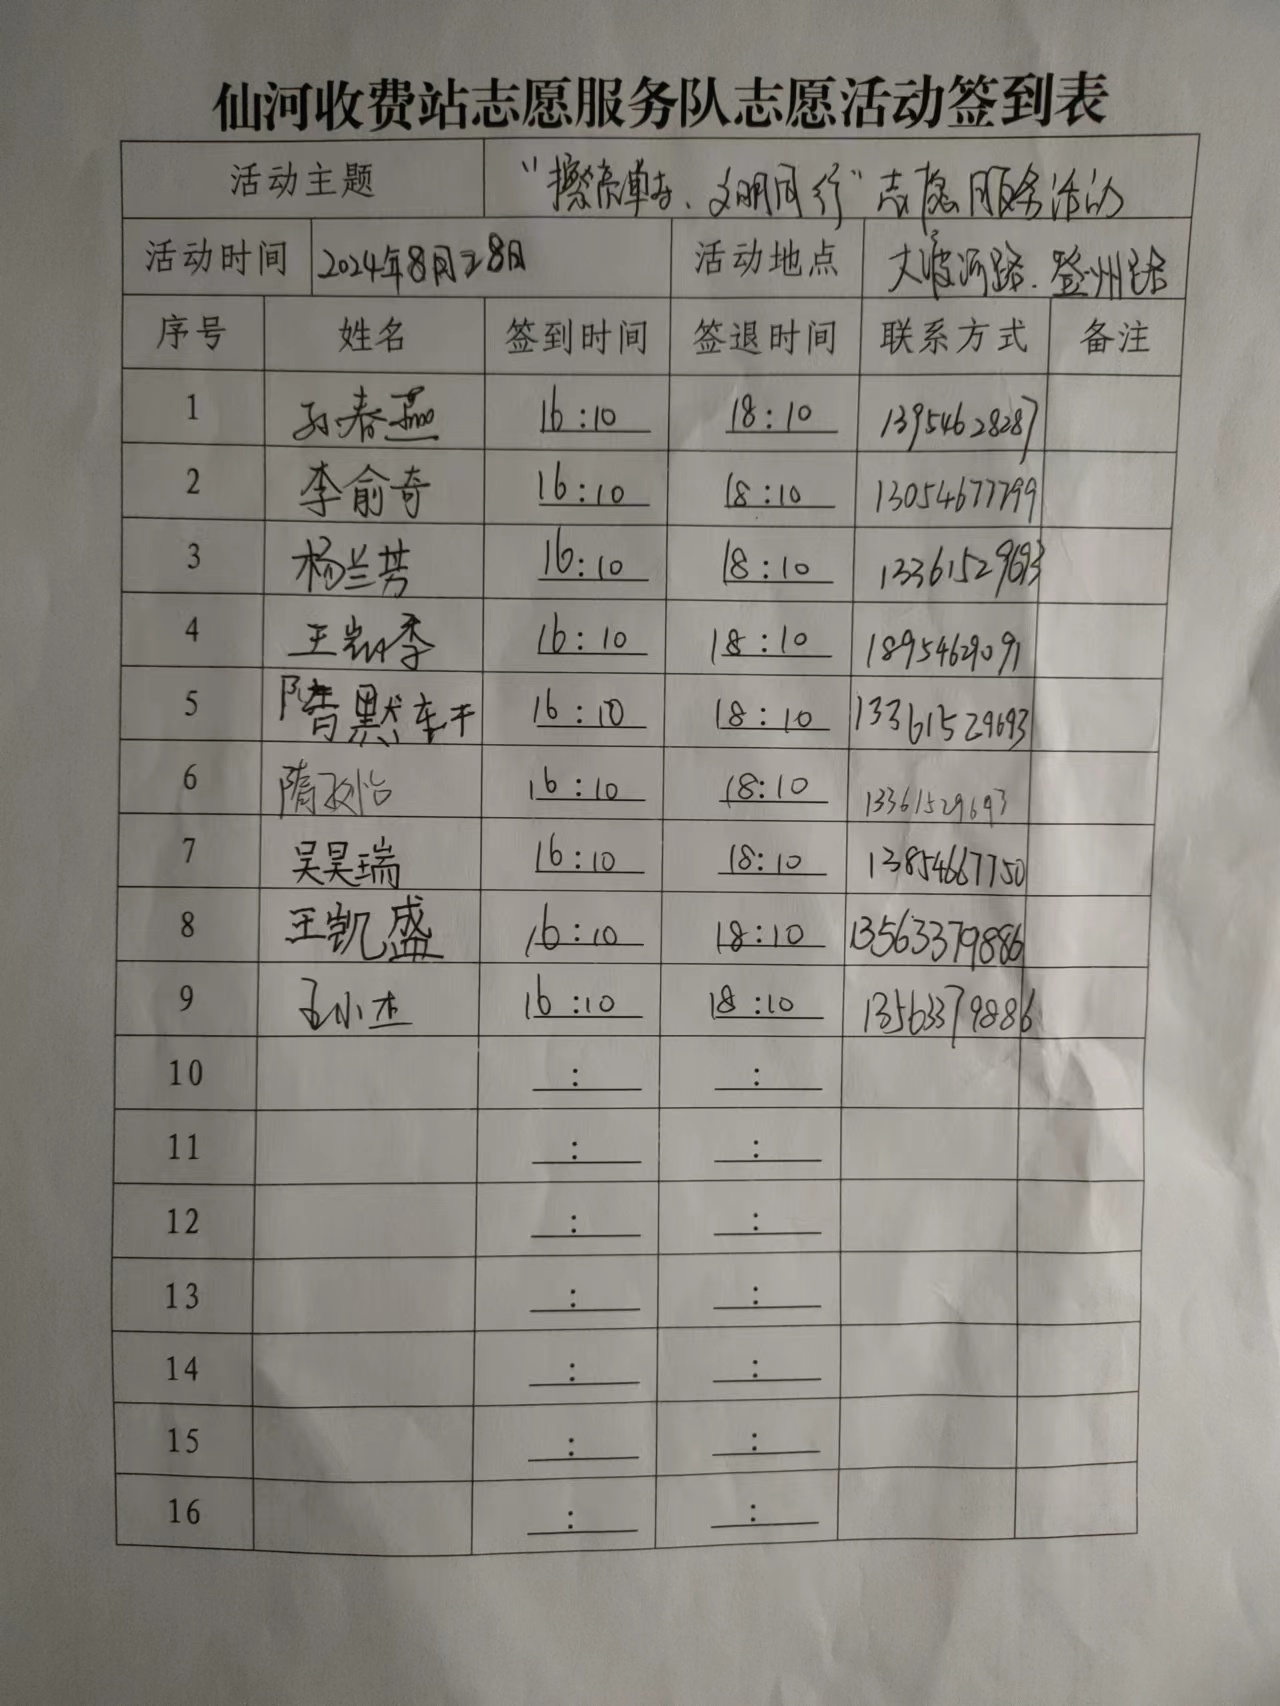 仙河收费站志愿服务队志愿活动签到表
活动主题 “擦亮单车、文明同行”志愿服务活动
活动时间 2024年8月28日 活动地点 大渡河路、登州路
序号 姓名 签到时间 签退时间 联系方式 备注
1 孙春燕 16:10 18:10 13954628287
2 李俞奇 16:10 18:10 13054677799
3 杨兰芳 16:10 18:10 13361529693
4 王凯季 16:10 18:10 18954629091
5 隋默 16:10 18:10 13361529693
6 隋 怡 16:10 18:10 13361529693
7 吴昊瑞 16:10 18:10 13854667750
8 王凯盛 16:10 18:10 13563379886
9 孟小杰 16:10 18:10 13563379886
10 : :
11 : :
12 : :
13 : :
14 : :
15 : :
16 : :